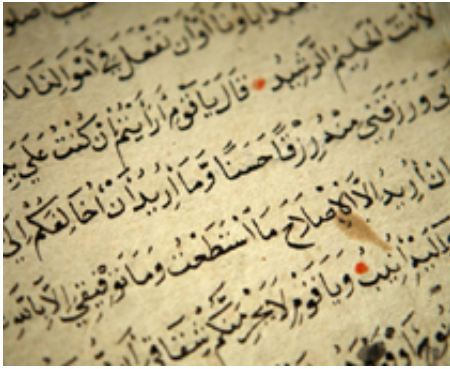 اَبَاؤُنَا أَوْ أَنْ نَفْعَلَ فِي أَمْوَالِنَا مَا
لَأَنْتَ الْحَلِيمُ الرَّشِيدُ قَالَ يَا قَوْمِ أَرَأَيْتُمْ إِنْ كُنْتُ عَلَى
وَرَزَقَنِي مِنْهُ رِزْقًا حَسَنًا وَمَا أُرِيدُ أَنْ أُخَالِفَكُمْ إِلَى
إِنْ أُرِيدُ إِلَّا الْإِصْلَاحَ مَا اسْتَطَعْتُ وَمَا تَوْفِيقِي إِلَّا بِاللهِ
وَإِلَيْهِ أُنِيبُ وَيَا قَوْمِ لَا يَجْرِمَنَّكُمْ شِقَاقِي أَنْ
نُوحٍ أَوْ